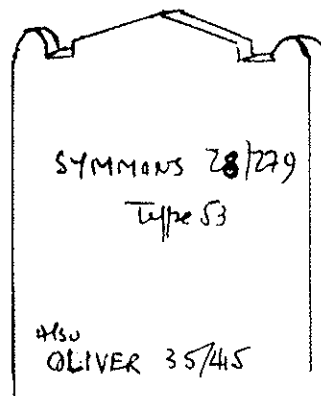 SYMMONS 28/279
Type 53
Also
OLIVER 35/45